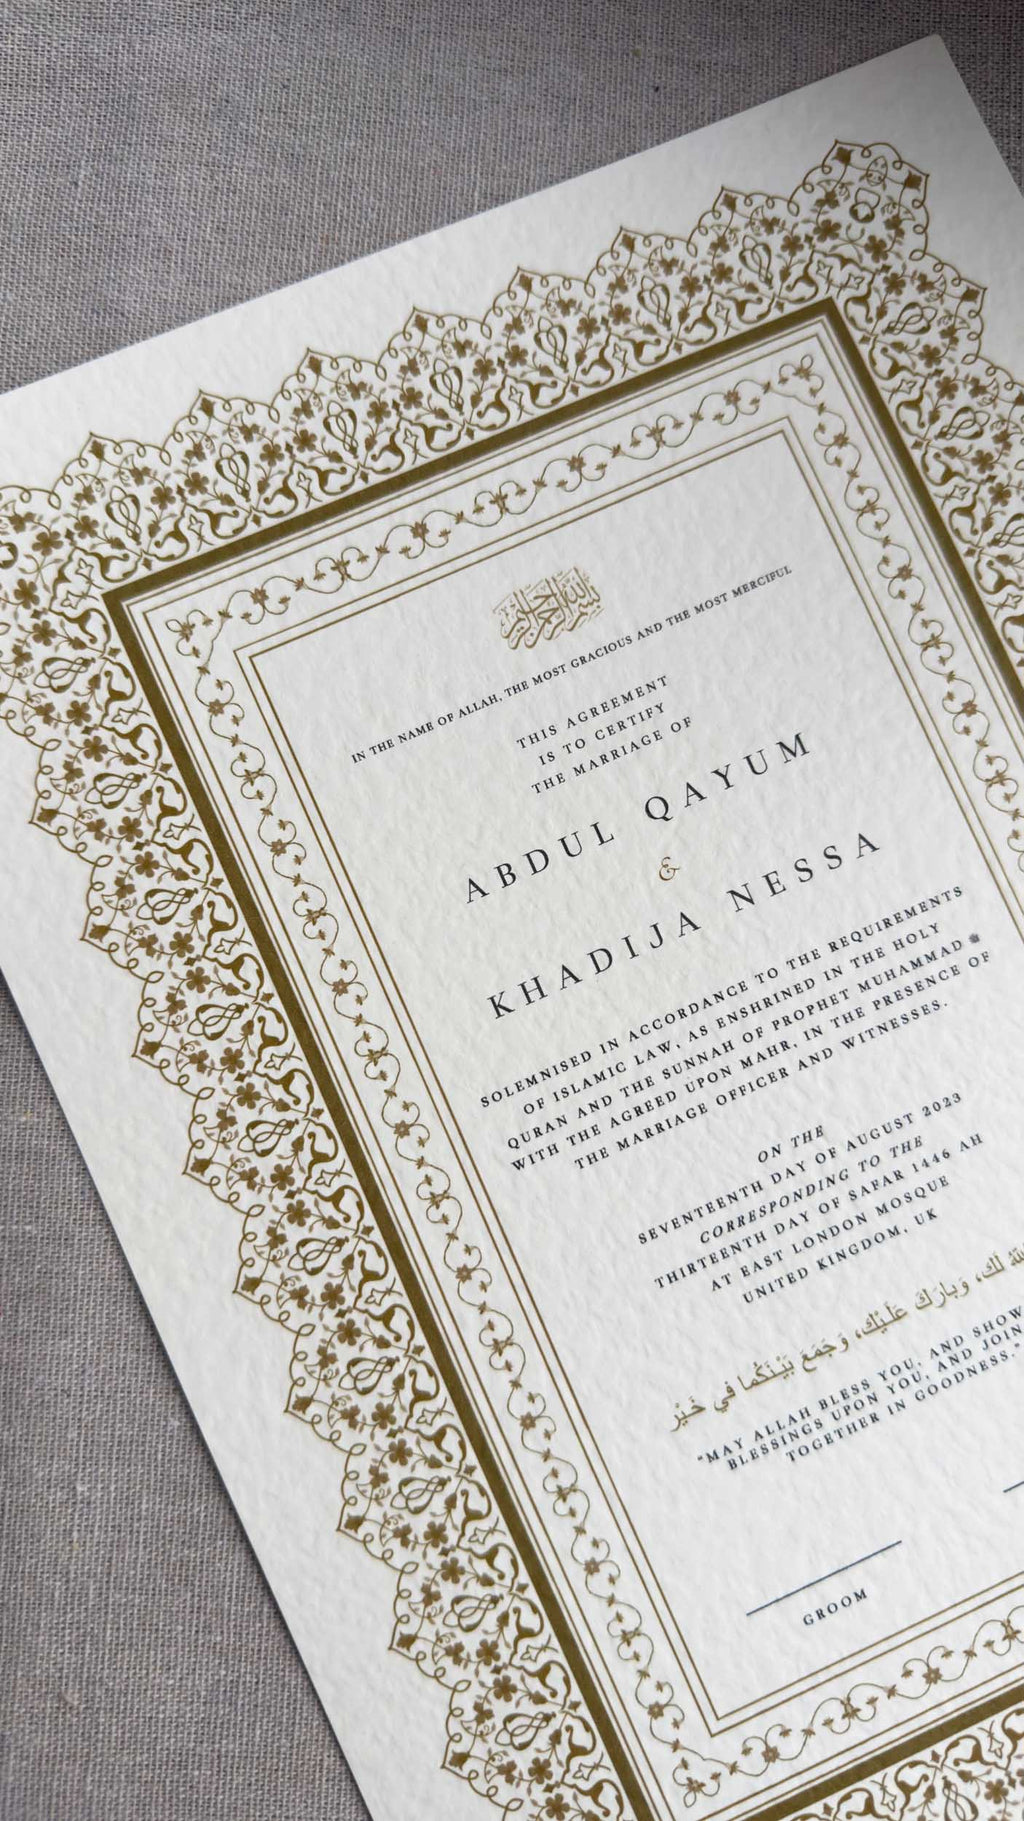 بسم الله الرحمن الرحيم
IN THE NAME OF ALLAH, THE MOST GRACIOUS AND THE MOST MERCIFUL
THIS AGREEMENT
IS TO CERTIFY
THE MARRIAGE OF
ABDUL QAYUM
&
KHADIJA NESSA
SOLEMNISED IN ACCORDANCE TO THE REQUIREMENTS
OF ISLAMIC LAW, AS ENSHRINED IN THE HOLY
QURAN AND THE SUNNAH OF PROPHET MUHAMMAD ﷺ
WITH THE AGREED UPON MAHR, IN THE PRESENCE OF
THE MARRIAGE OFFICER AND WITNESSES.
ON THE
SEVENTEENTH DAY OF AUGUST 2023
CORRESPONDING TO THE
THIRTEENTH DAY OF SAFAR 1446 AH
AT EAST LONDON MOSQUE
UNITED KINGDOM, UK
لَكَ، وَبَارَكَ عَلَيْكَ، وَجَمَعَ بَيْنَكُمَا فِي خَيْر
"MAY ALLAH BLESS YOU, AND SHOW
BLESSINGS UPON YOU, AND JOIN
TOGETHER IN GOODNESS."
GROOM